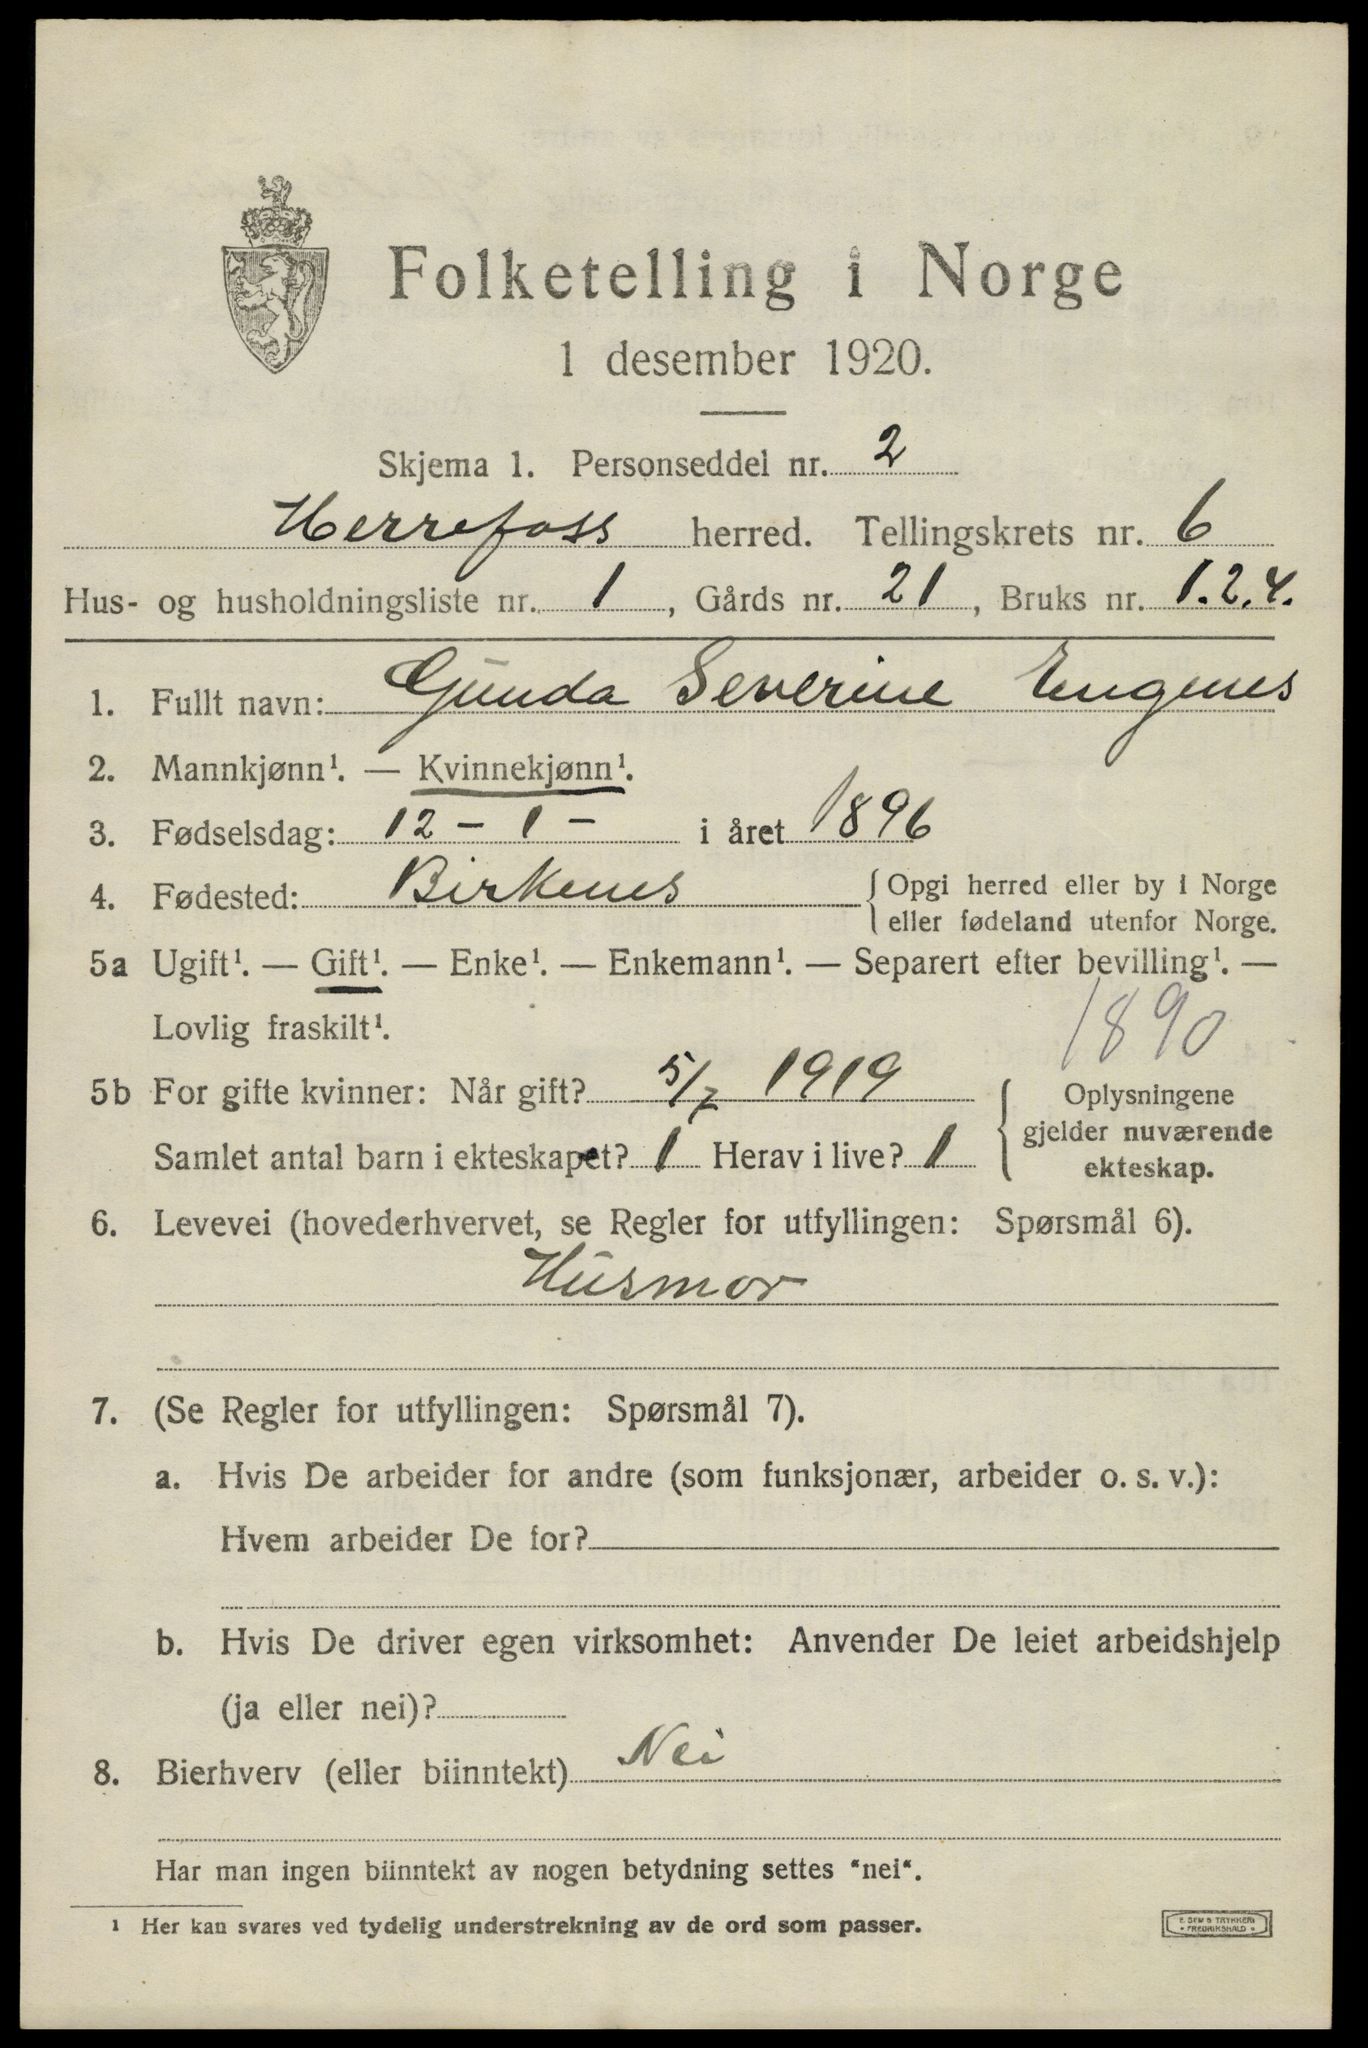 Folketelling i Norge
1 desember 1920.
Skjema 1. Personseddel nr. 2
Herrefoss herred. Tellingskrets nr. 6
Hus- og husholdningsliste nr. 1, Gårds nr. 21, Bruks nr. 1.2.4.
1. Fullt navn: Gunda Severine Engenes
2. Mannkjønn¹. — Kvinnekjønn¹.
3. Fødselsdag: 12 - 1 - i året 1896
4. Fødested: Birkenes { Opgi herred eller by i Norge
eller fødeland utenfor Norge.
5a Ugift¹. — Gift¹. — Enke¹. — Enkemann¹. — Separert efter bevilling¹. —
Lovlig fraskilt¹.
1890
5b For gifte kvinner: Når gift? 5/7 1919
Samlet antal barn i ekteskapet? 1 Herav i live? 1
Oplysningene
gjelder nuværende
ekteskap.
6. Levevei (hovederhvervet, se Regler for utfyllingen: Spørsmål 6).
Husmor
7. (Se Regler for utfyllingen: Spørsmål 7).
a. Hvis De arbeider for andre (som funksjonær, arbeider o. s. v.):
Hvem arbeider De for?
b. Hvis De driver egen virksomhet: Anvender De leiet arbeidshjelp
(ja eller nei)?
8. Bierhverv (eller biinntekt) Nei
Har man ingen biinntekt av nogen betydning settes "nei".
¹ Her kan svares ved tydelig understrekning av de ord som passer.
E. SEM'S TRYKKERI
FREDRIKSHALD